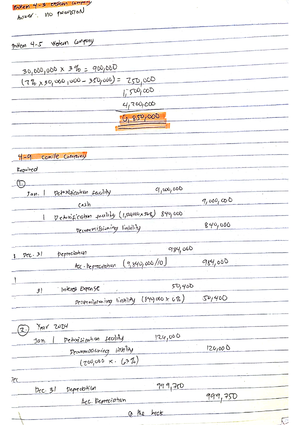 Problem 4-3
Answer: no provision
Problem 4-5 Western Company
30,000,000 x 3% = 900,000
(3% x 30,000,000 - 350,000) = 250,000
1,500,000
4,200,000
6,850,000
4-9 Comite Company
Required
①
Jan. 1 Detoxification facility 9,000,000
Cash 9,000,000
1 Detoxification facility 840,000
Decommissioning liability 840,000
Dec. 31 Depreciation 984,000
Acc. Depreciation (9,840,000/10) 984,000
31 Interest Expense 50,400
Decommissioning liability (840,000 x 6%) 50,400
② Year 2024
Jan. 1 Detoxification facility 126,000
Decommissioning liability 126,000
(200,000 x .63)
Dec. 31 Depreciation 999,750
Acc. Depreciation 999,750
@ the back